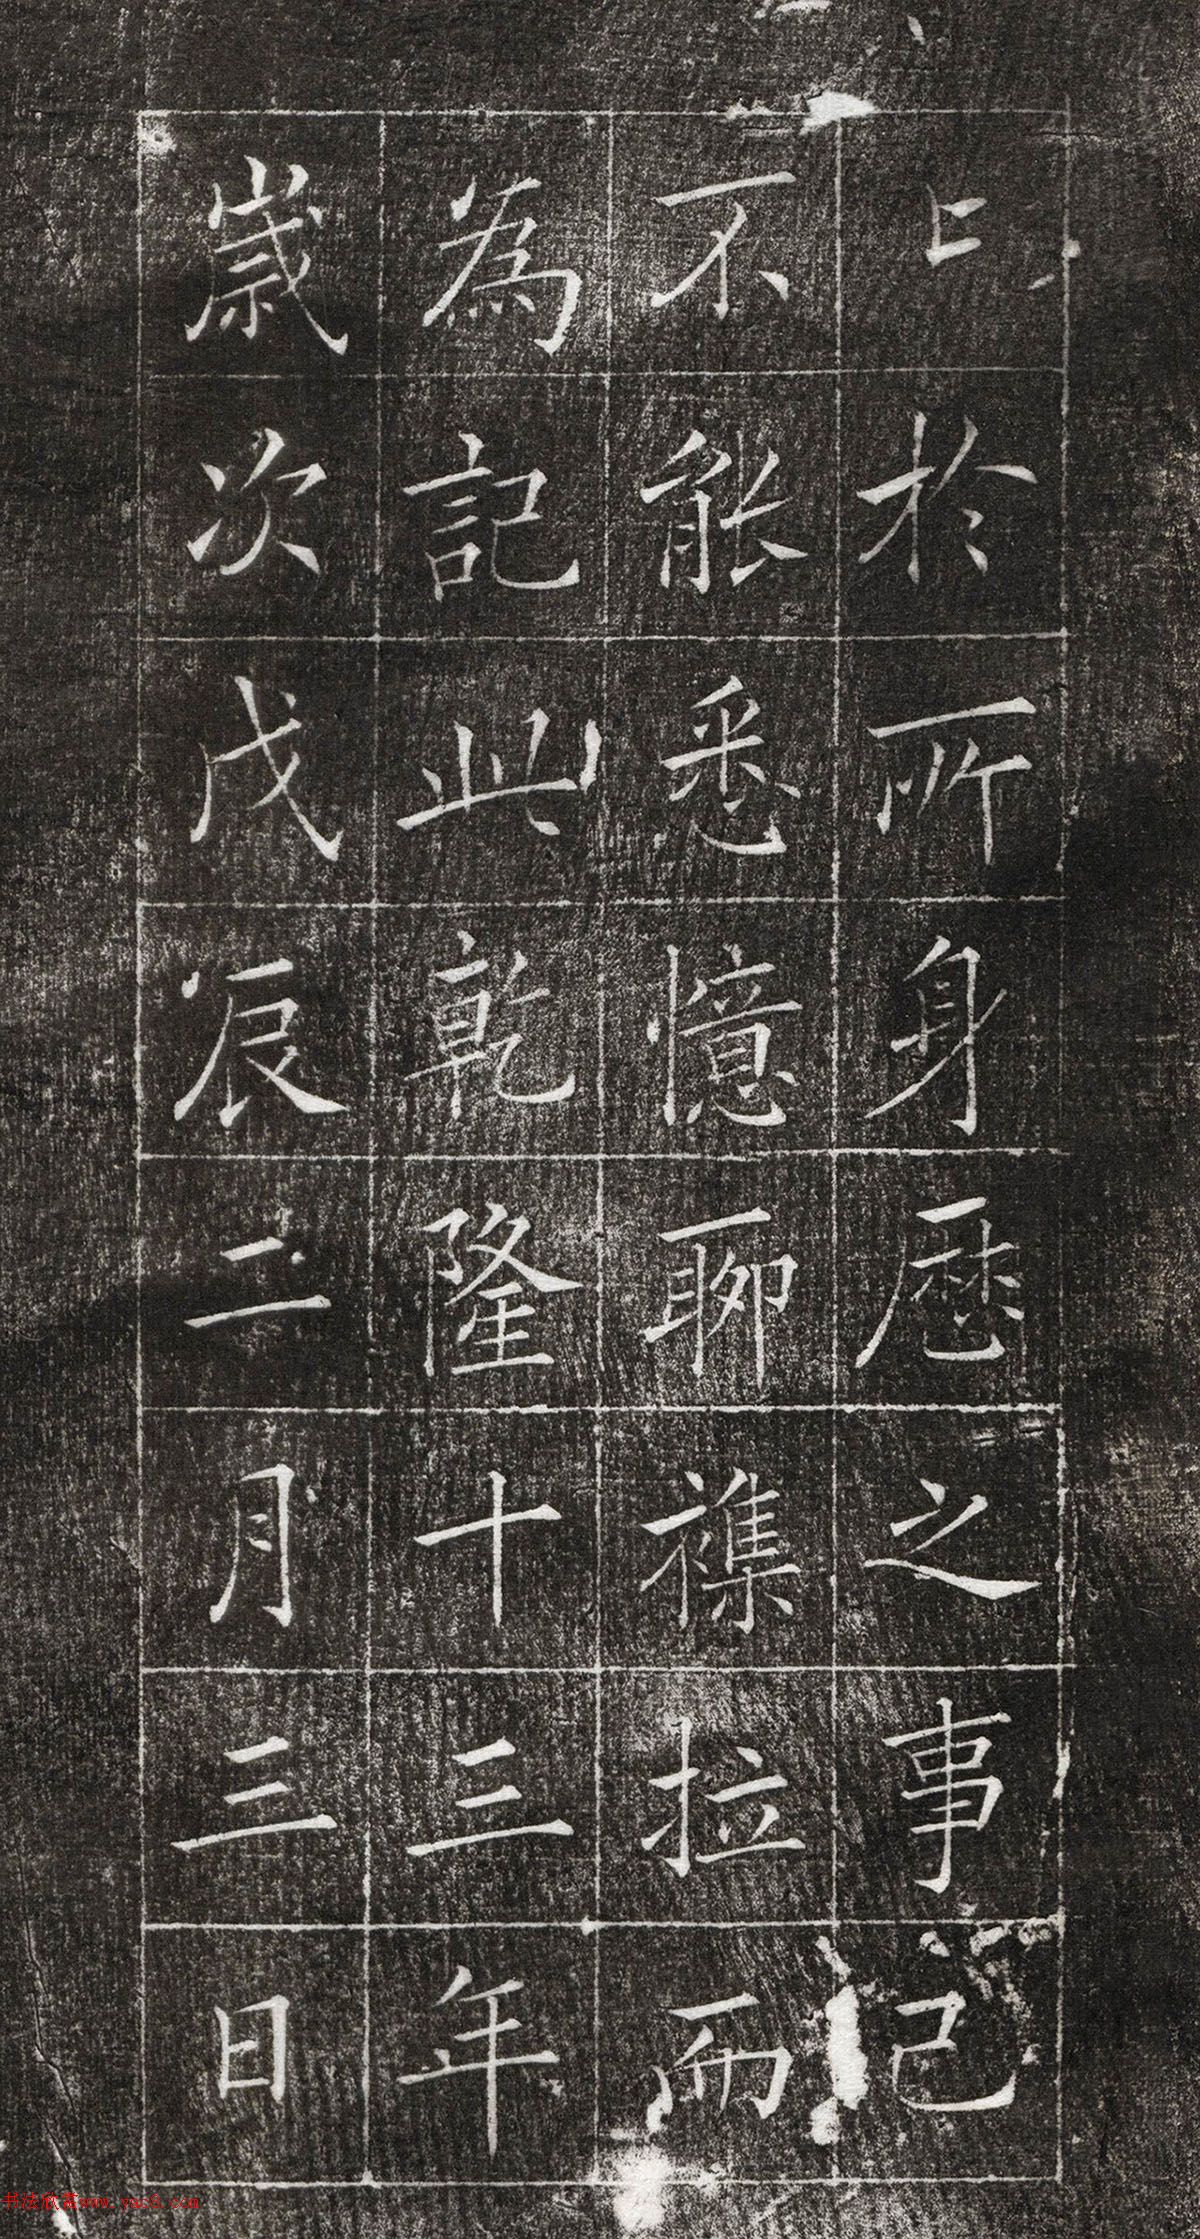 上於所身歷之事已
不能悉憶聊襍拉而
為記此乾隆十三年
歲次戊辰二月三日
书法欣赏www.yac8.com